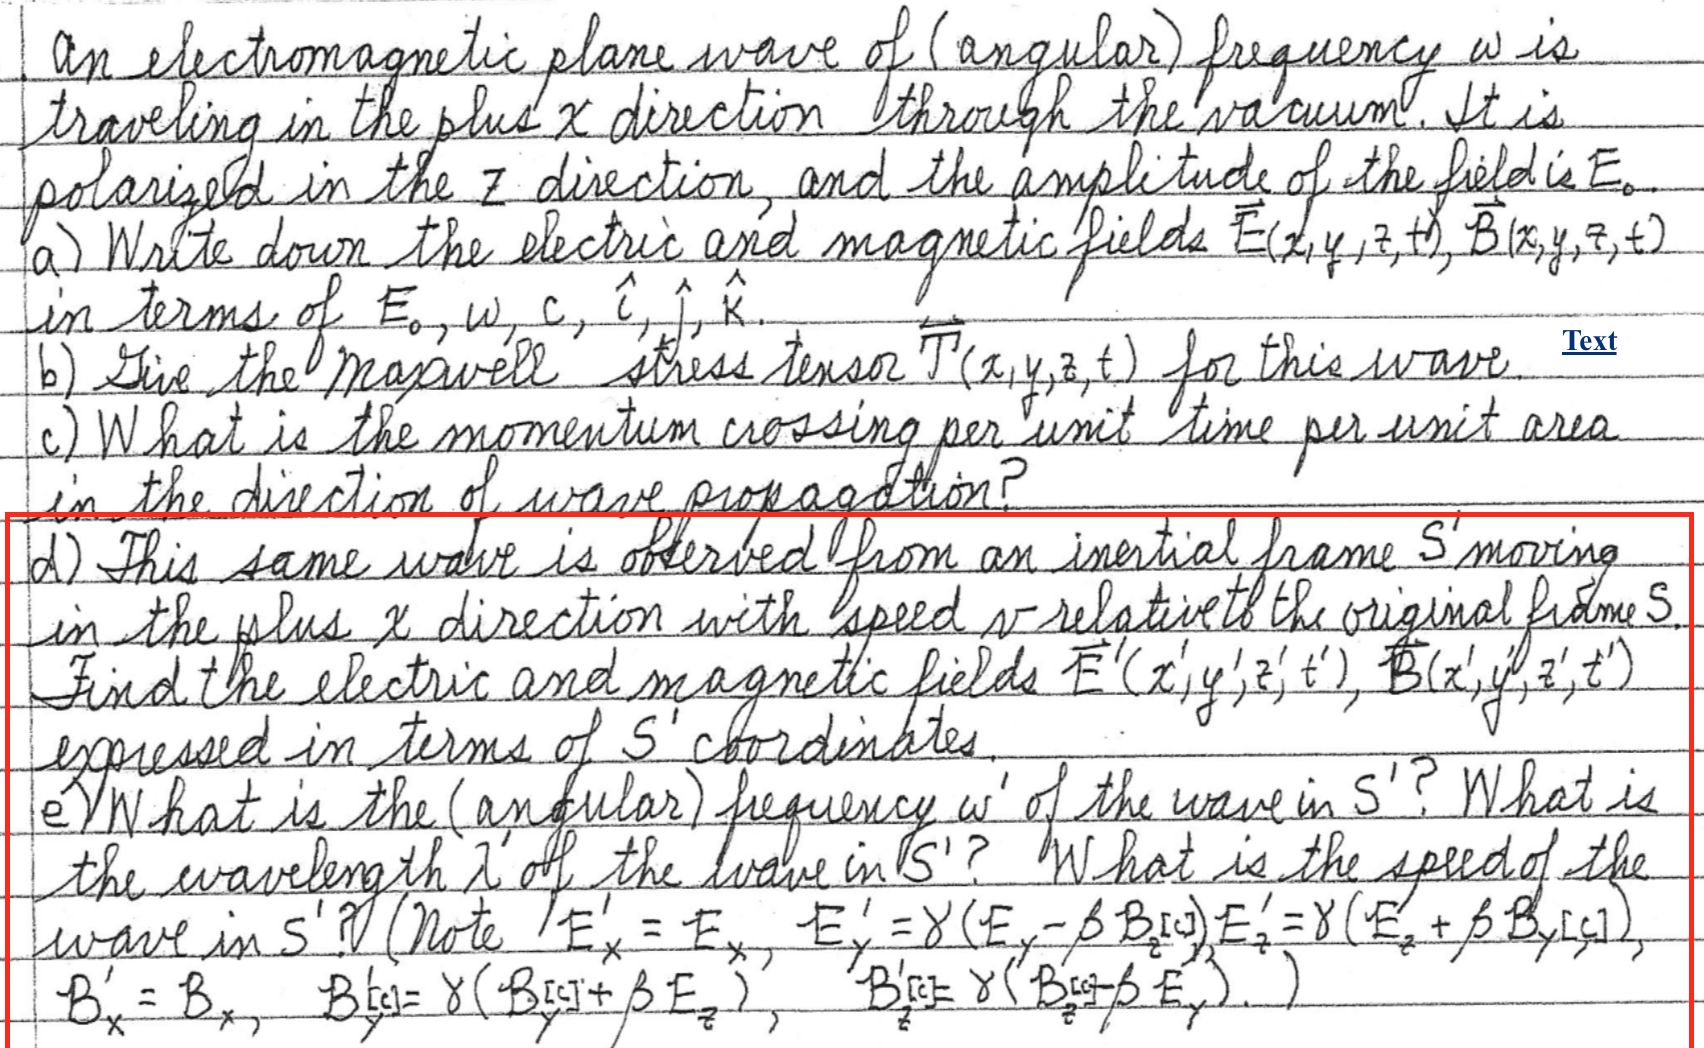 An electromagnetic plane wave of (angular) frequency ω is
traveling in the plus x direction through the vacuum. It is
polarized in the z direction, and the amplitude of the field is E₀.
a) Write down the electric and magnetic fields E⃗(x,y,z,t), B⃗(x,y,z,t)
in terms of E₀, ω, c, î, ĵ, k̂.
Text
b) Give the Maxwell stress tensor T⃗(x,y,z,t) for this wave.
c) What is the momentum crossing per unit time per unit area
in the direction of wave propagation?
d) This same wave is observed from an inertial frame S' moving
in the plus x direction with speed v relative to the original frame S.
Find the electric and magnetic fields E⃗'(x',y',z',t'), B⃗(x',y',z',t')
expressed in terms of S' coordinates.
e) What is the (angular) frequency ω' of the wave in S'? What is
the wavelength λ' of the wave in S'? What is the speed of the
wave in S'? (Note E'ₓ = Eₓ, E'_y = γ(E_y - β B_z[c]), E'_z = γ(E_z + β B_y[c]),
B'ₓ = Bₓ, B'_y[c] = γ(B_y[c] + β E_z), B'_z[c] = γ(B_z[c] - β E_y). )